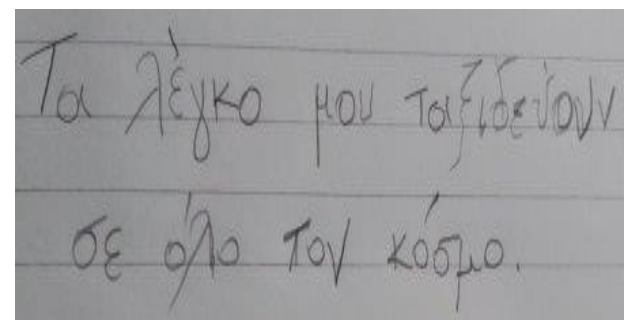 Τα λέγκο μου ταξιδεύουν
σε όλο τον κόσμο.